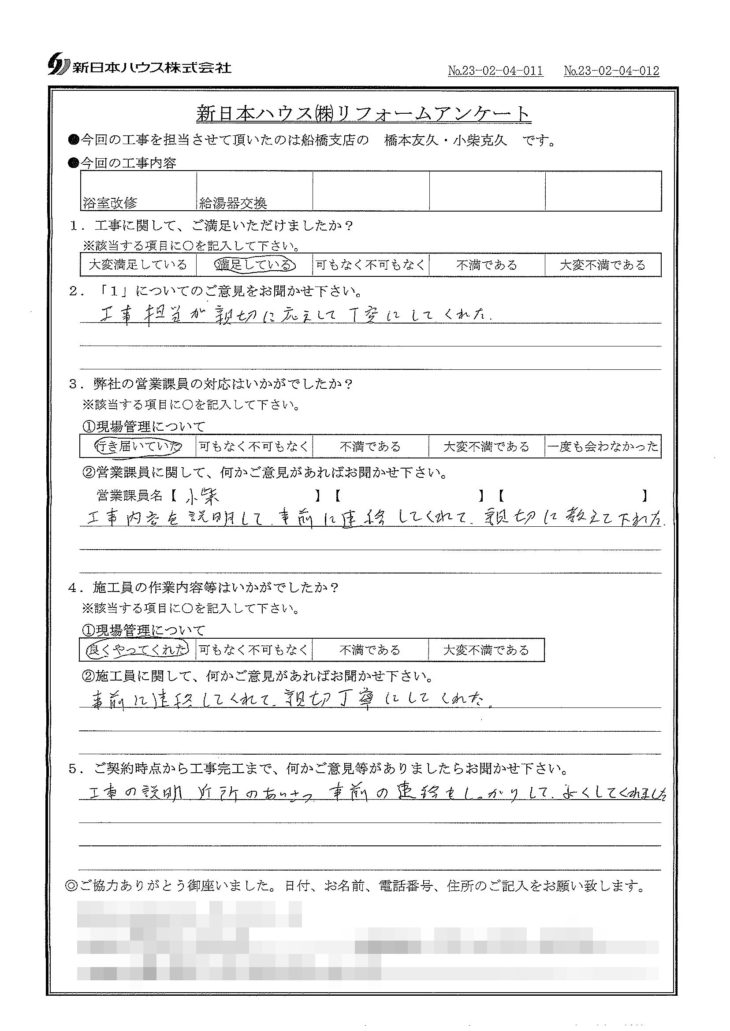 新日本ハウス株式会社
№23-02-04-011 №23-02-04-012
新日本ハウス㈱リフォームアンケート
●今回の工事を担当させて頂いたのは船橋支店の 橋本友久・小柴克久 です。
●今回の工事内容
浴室改修 給湯器交換
1．工事に関して、ご満足いただけましたか？
※該当する項目に○を記入して下さい。
大変満足している 満足している 可もなく不可もなく 不満である 大変不満である
2．「1」についてのご意見をお聞かせ下さい。
工事担当が親切に応えして丁寧にしてくれた.
3．弊社の営業課員の対応はいかがでしたか？
※該当する項目に○を記入して下さい。
①現場管理について
行き届いていた 可もなく不可もなく 不満である 大変不満である 一度も会わなかった
②営業課員に関して、何かご意見があればお聞かせ下さい。
営業課員名【 小柴 】【 】【 】
工事内容を説明して、事前に連絡してくれて、親切に教えて下れた.
4．施工員の作業内容等はいかがでしたか？
※該当する項目に○を記入して下さい。
①現場管理について
良くやってくれた 可もなく不可もなく 不満である 大変不満である
②施工員に関して、何かご意見があればお聞かせ下さい。
事前に連絡してくれて、親切丁寧にしてくれた.
5．ご契約時点から工事完工まで、何かご意見等がありましたらお聞かせ下さい。
工事の説明 近所のあいさつ 事前の連絡をしっかりして、よくしてくれました
◎ご協力ありがとう御座いました。日付、お名前、電話番号、住所のご記入をお願い致します。